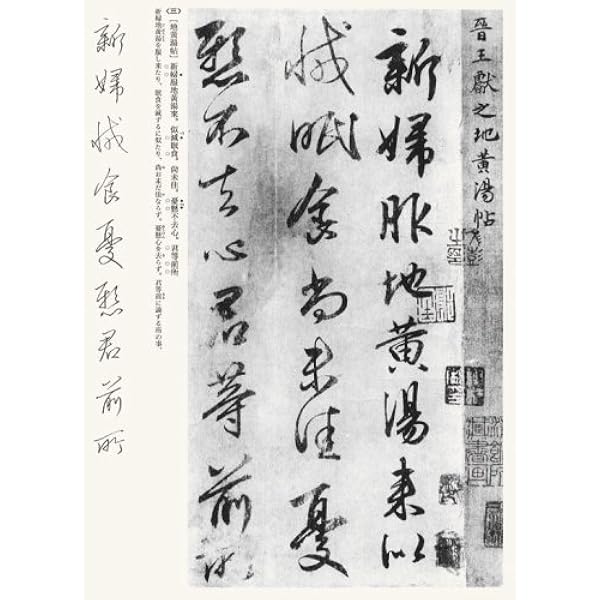 晉王獻之地黃湯帖
新婦服地黃湯来似
減眠食尚未佳憂
懸不去心君等前所
(三)[地黄湯帖]新婦服地黄湯来、似減眠食、尚未佳、憂懸不去心、君等前所
新婦地黄湯を服し来たり、眠食を減ずるに似たり、尚お未だ佳ならず。憂懸心を去らず。君等前に論ずる所の事、
新婦減食憂懸君前所